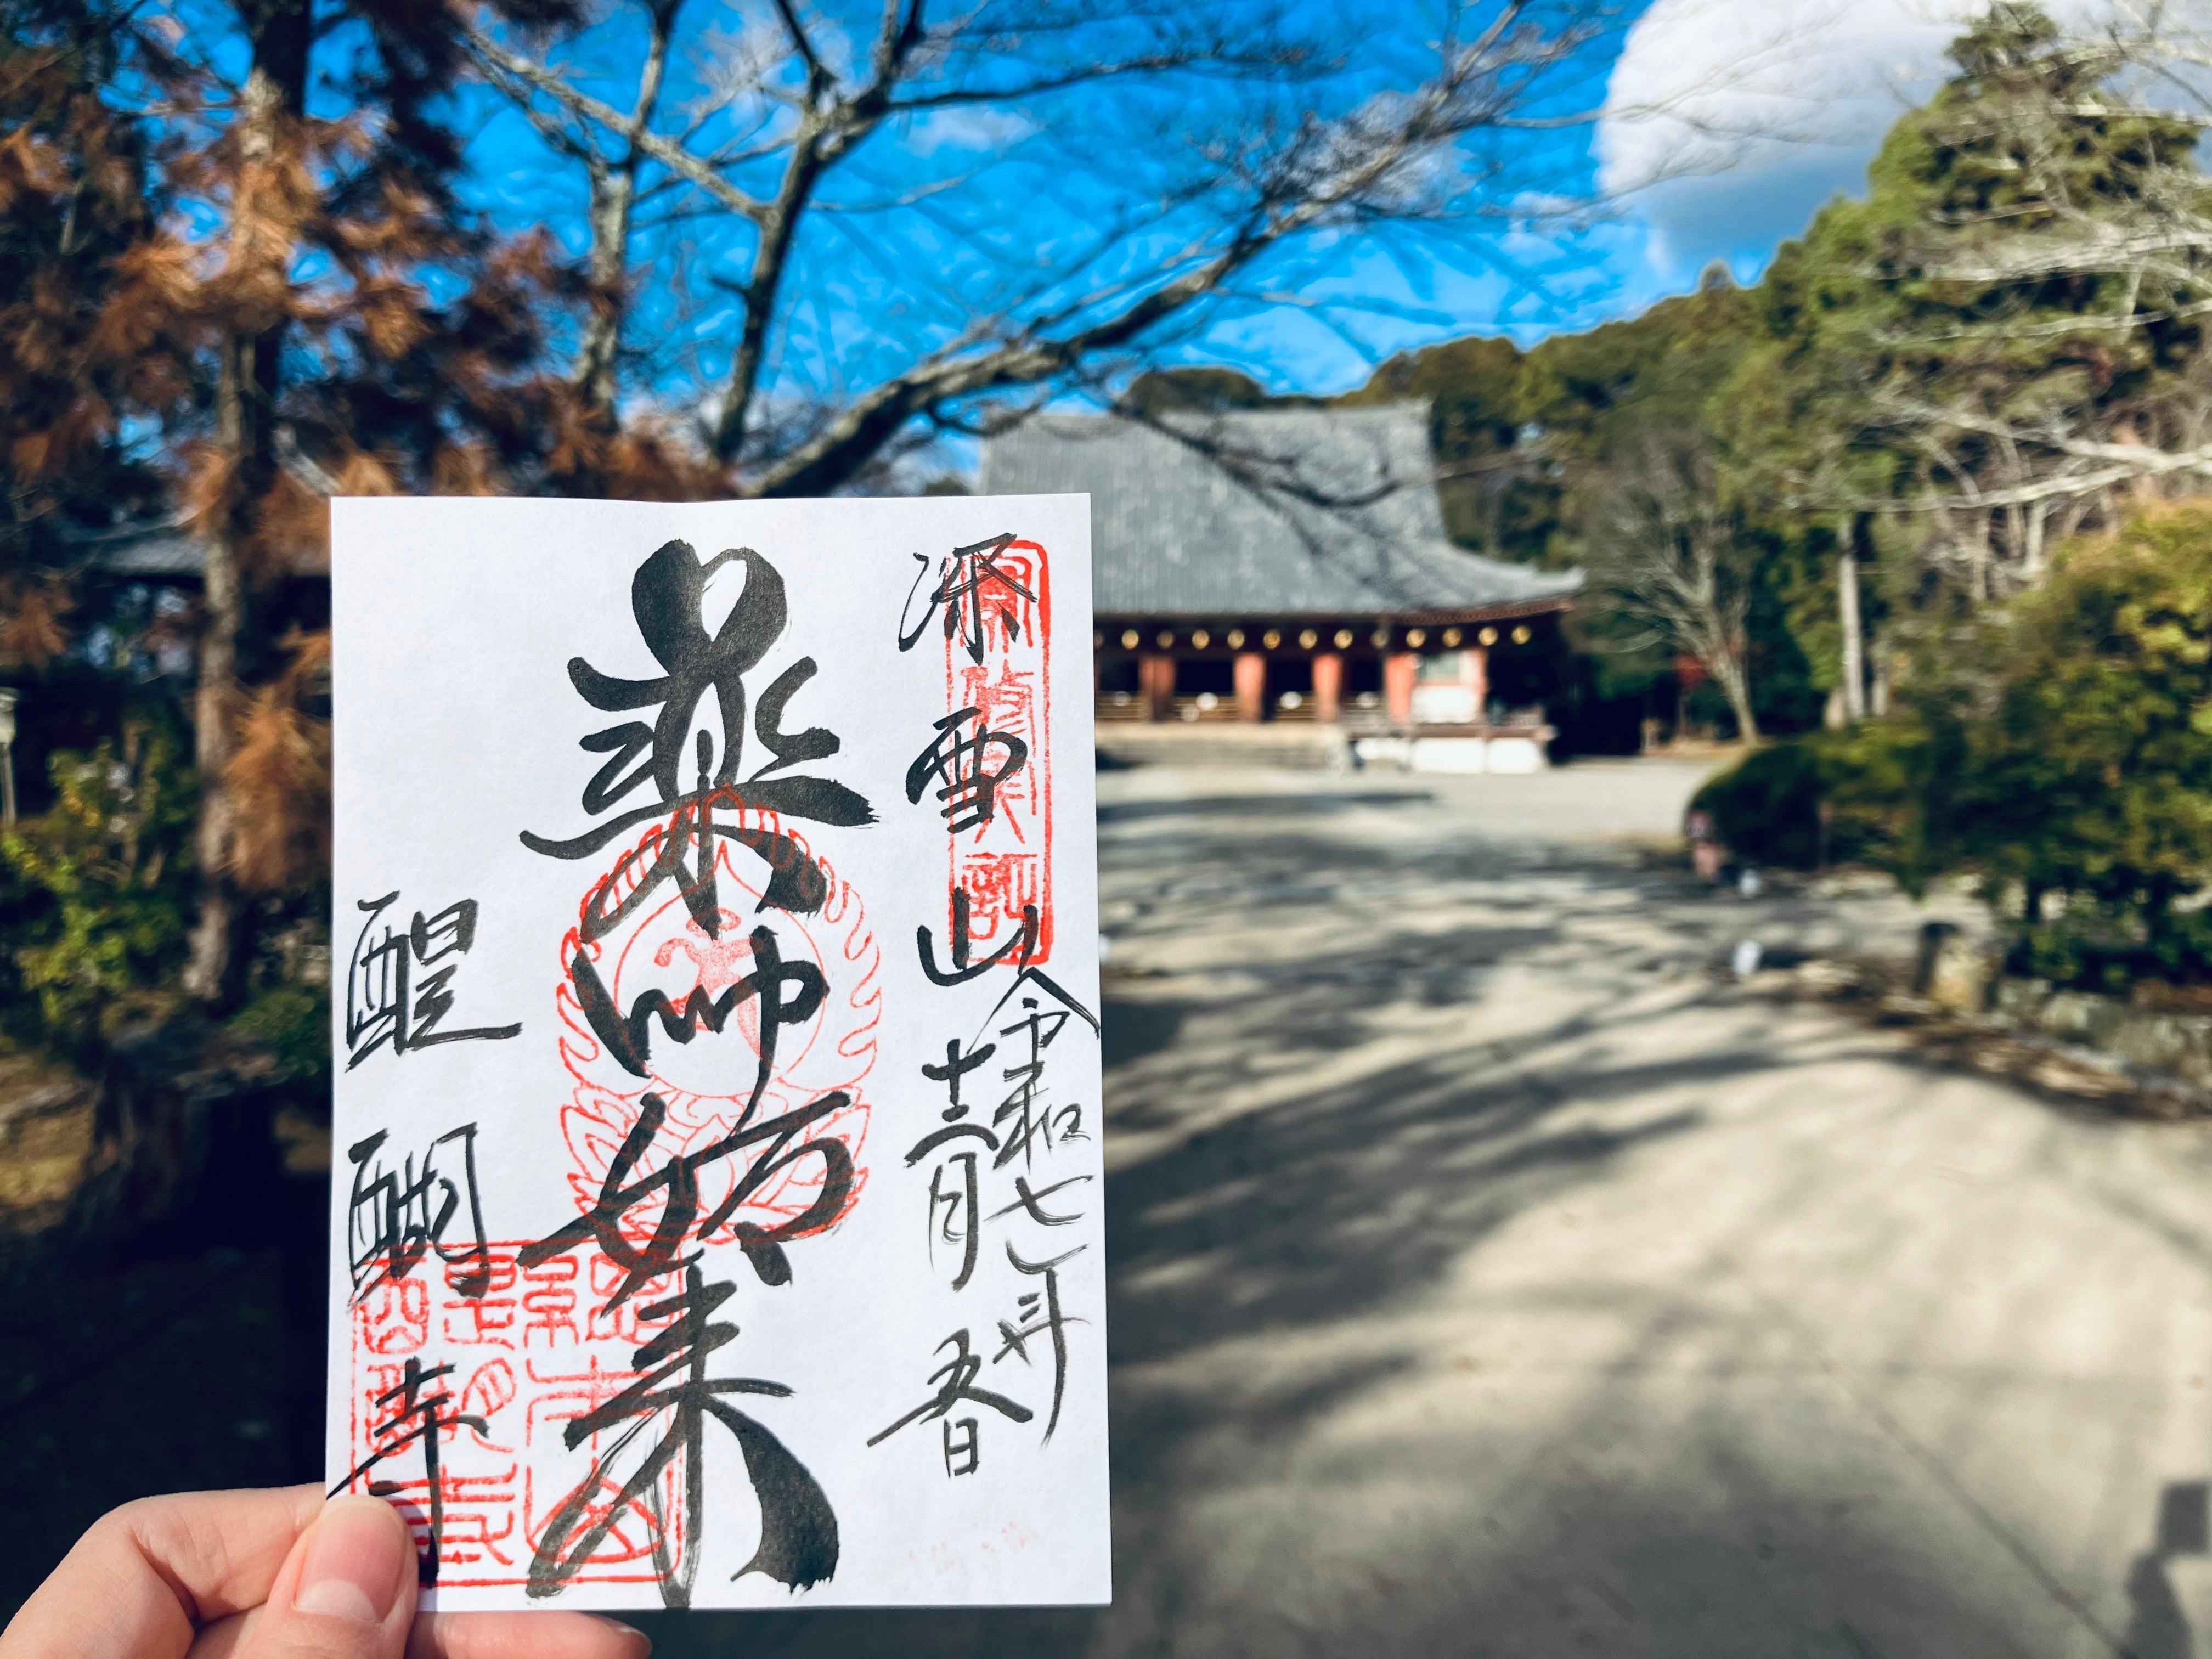 深雪山
令和七年
十二月五日
薬師如来
醍醐寺